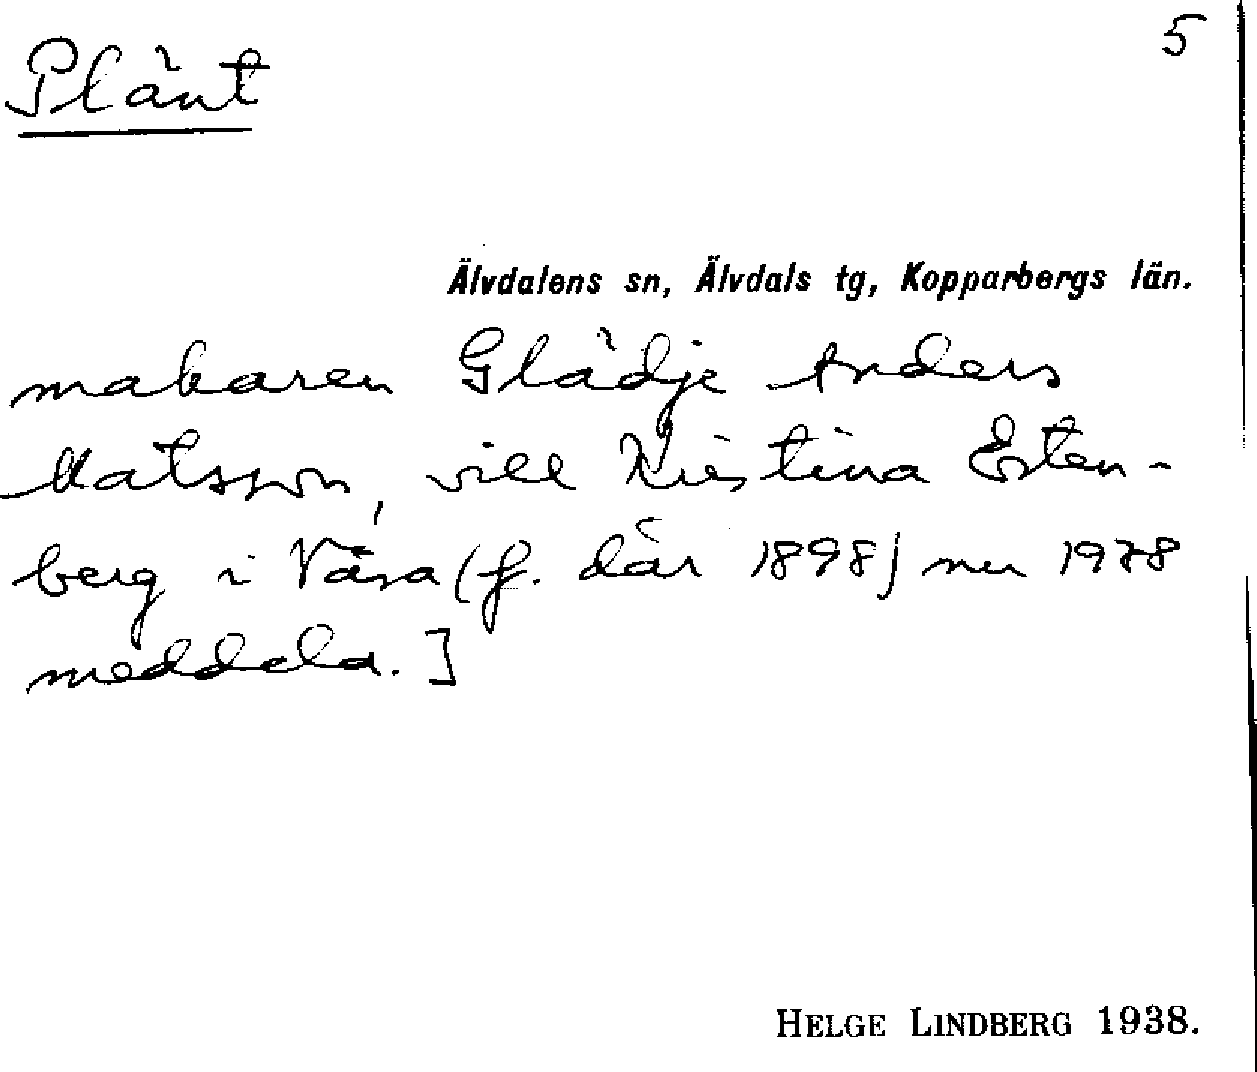 5
Plänt
Älvdalens sn, Älvdals tg, Kopparbergs län.
makaren Glädje Anders
Matsson, vill Kristina Esten-
berg i Våsa (f. där 1898) nu 1978
meddela.]
HELGE LINDBERG 1938.